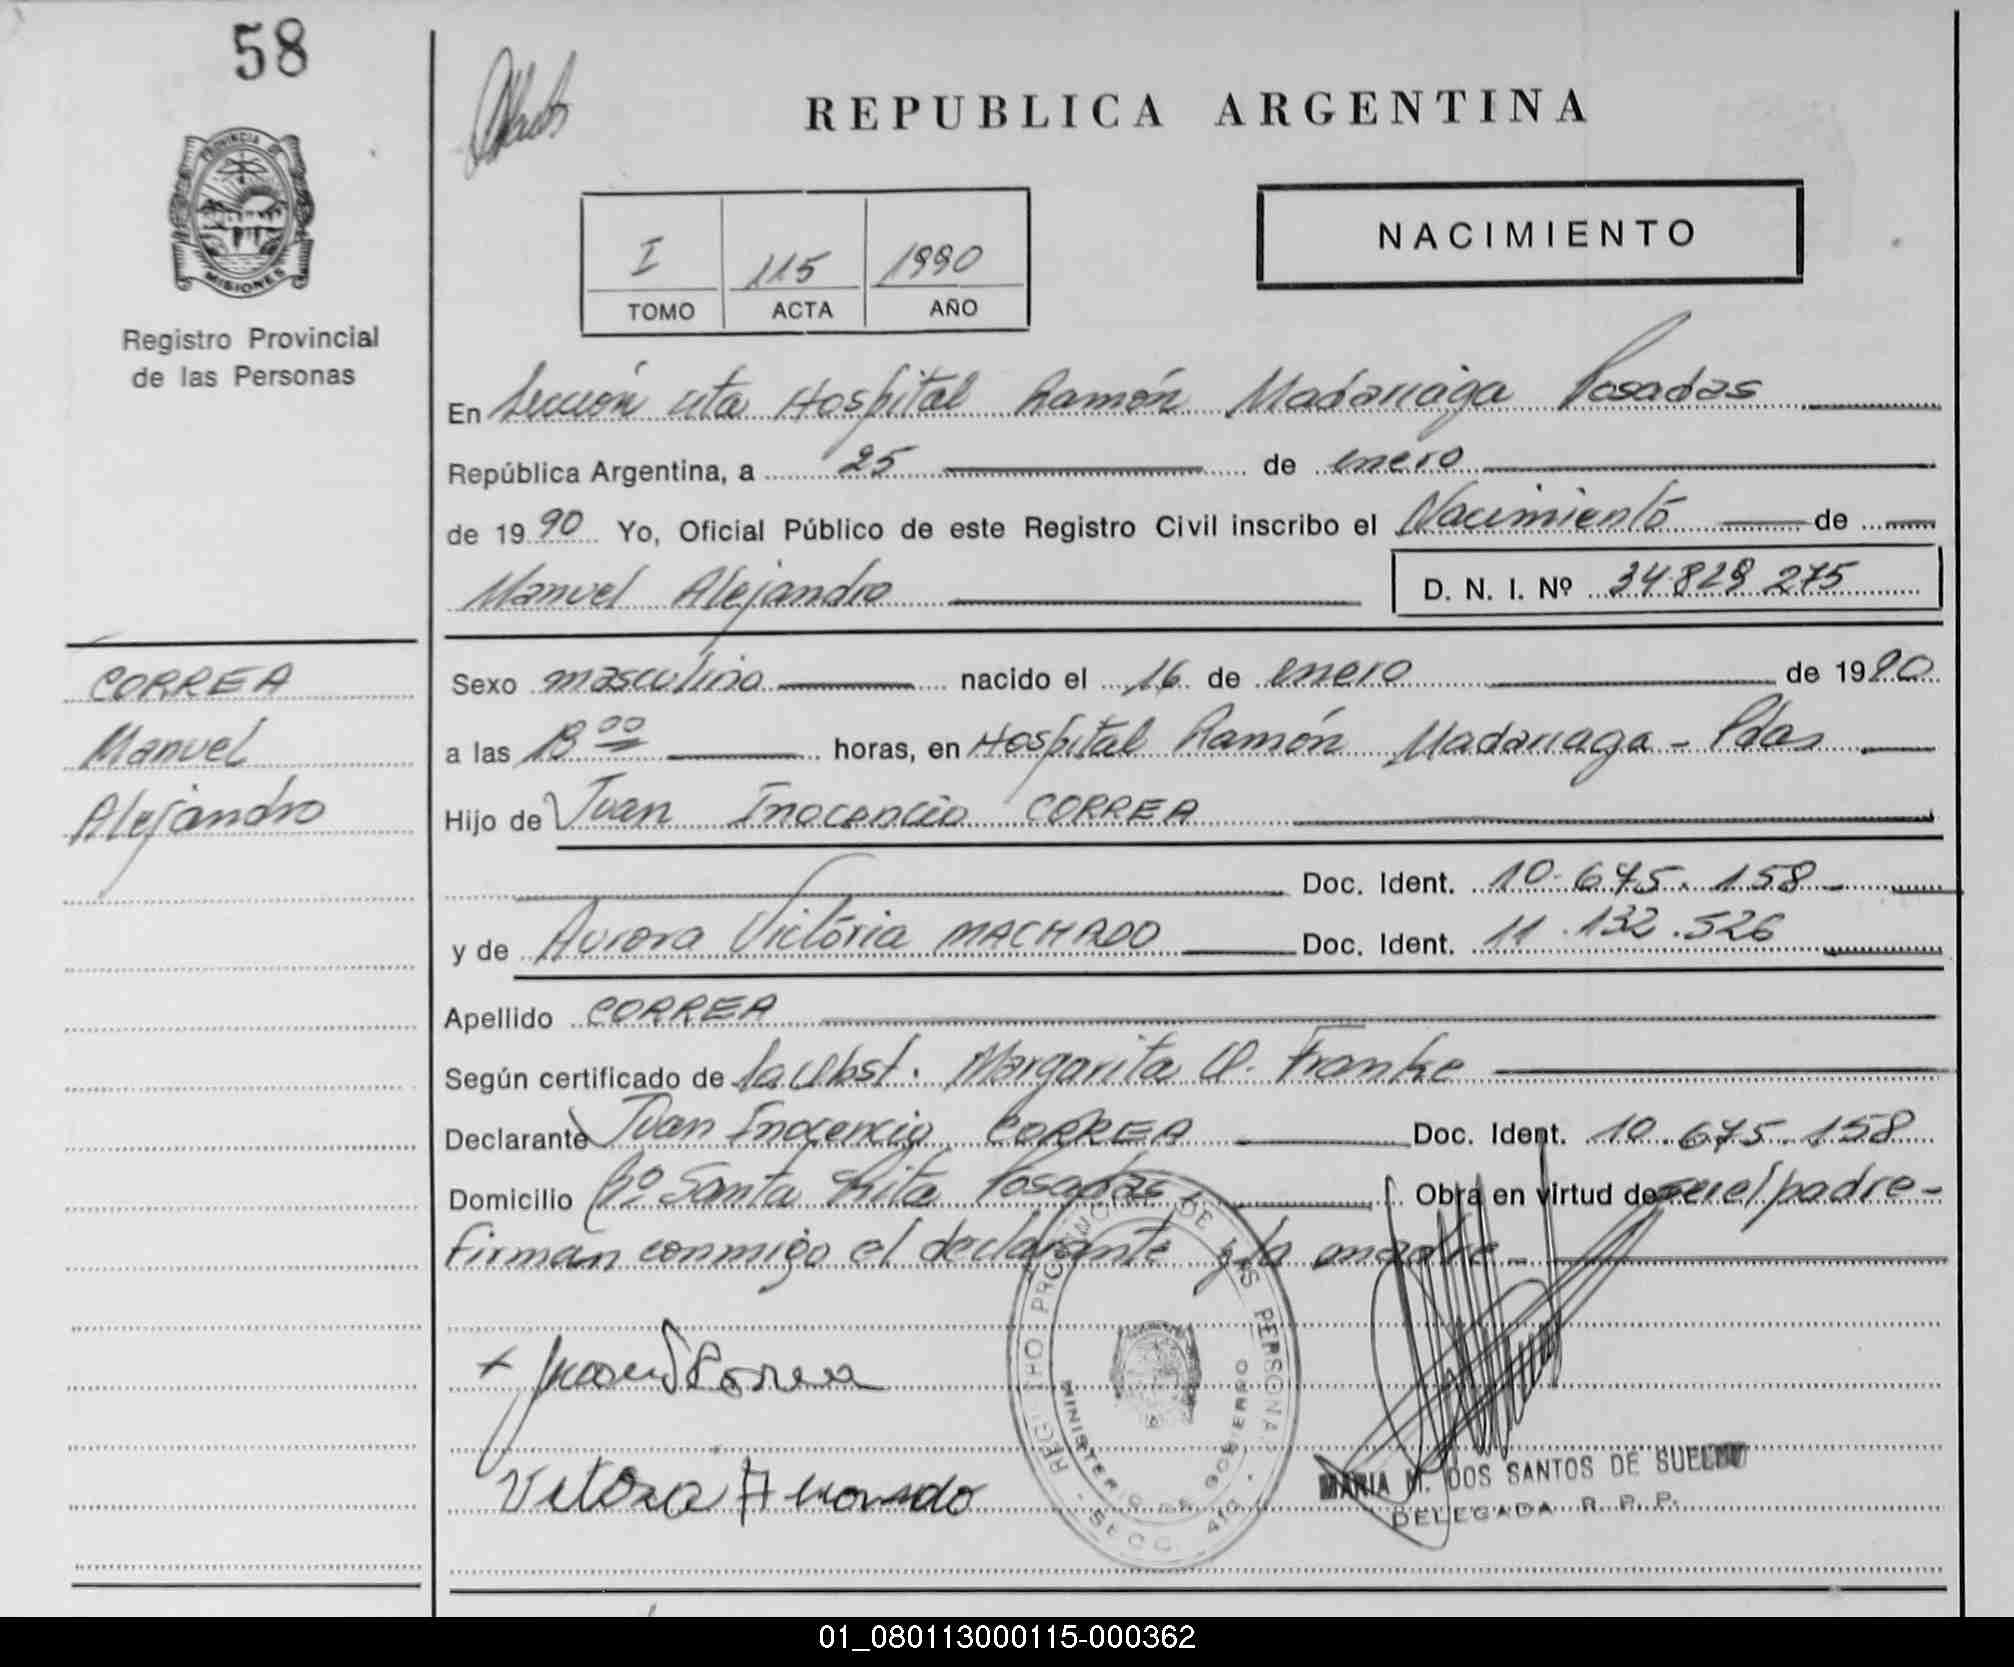 58
REPUBLICA ARGENTINA
PROVINCIA DE
MISIONES
Registro Provincial
de las Personas
I 115 1990
TOMO ACTA AÑO
NACIMIENTO
En Sección 4ta Hospital Ramón Madariaga Posadas
República Argentina, a 25 de enero
de 1990 Yo, Oficial Público de este Registro Civil inscribo el Nacimiento de
Manuel Alejandro D. N. I. Nº 34.829.275
CORREA
Manuel
Alejandro
Sexo masculino nacido el 16 de enero de 1990
a las 13 00 horas, en Hospital Ramón Madariaga - Pdas
Hijo de Juan Inocencio CORREA
Doc. Ident. 10.675.158
y de Aurora Victoria MACHADO Doc. Ident. 11.132.526
Apellido CORREA
Según certificado de la Obst. Margarita Franke
Declarante Juan Inocencio CORREA Doc. Ident. 10.675.158
Domicilio Bº Santa Rita Posadas Obra en virtud de ser el padre-
Firman conmigo el declarante y la madre -
REGISTRO PROVINCIAL DE LAS PERSONAS
MINISTERIO DE GOBIERNO
SECC. 4ta
MARIA M. DOS SANTOS DE SUELDO
DELEGADA R. P. P.
01_080113000115-000362